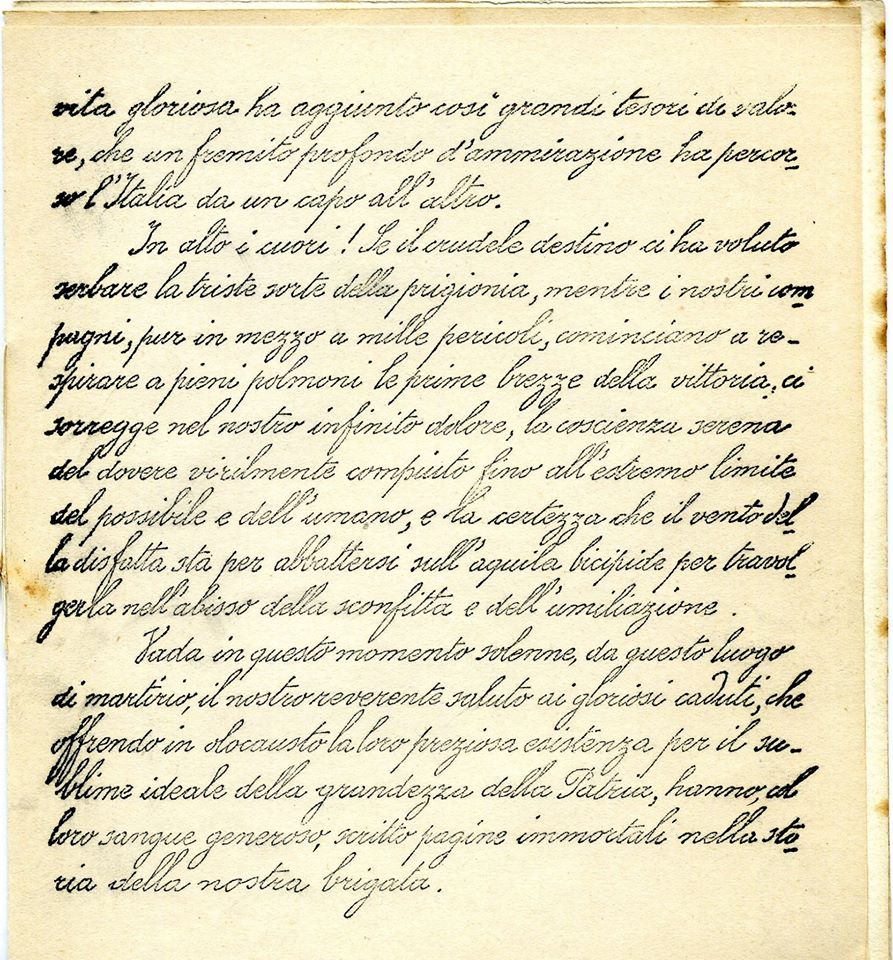 vita gloriosa ha aggiunto così grandi tesori di valo-
re, che un fremito profondo d'ammirazione ha percor-
so l'Italia da un capo all'altro.
In alto i cuori! Se il crudele destino ci ha voluto
serbare la triste sorte della prigionia, mentre i nostri com
pagni, pur in mezzo a mille pericoli, cominciano a re-
spirare a pieni polmoni le prime brezze della vittoria, ci
sorregge nel nostro infinito dolore, la coscienza serena
del dovere virilmente compiuto fino all'estremo limite
del possibile e dell'umano, e la certezza che il vento del
la disfatta sta per abbattersi sull'aquila bicipide per travol
gerla nell'abisso della sconfitta e dell'umiliazione.
Vada in questo momento solenne, da questo luogo
di martirio, il nostro reverente saluto ai gloriosi caduti, che
offrendo in olocausto la loro preziosa esistenza per il su-
blime ideale della grandezza della Patria, hanno, col
loro sangue generoso, scritto pagine immortali nella sto
ria della nostra brigata.